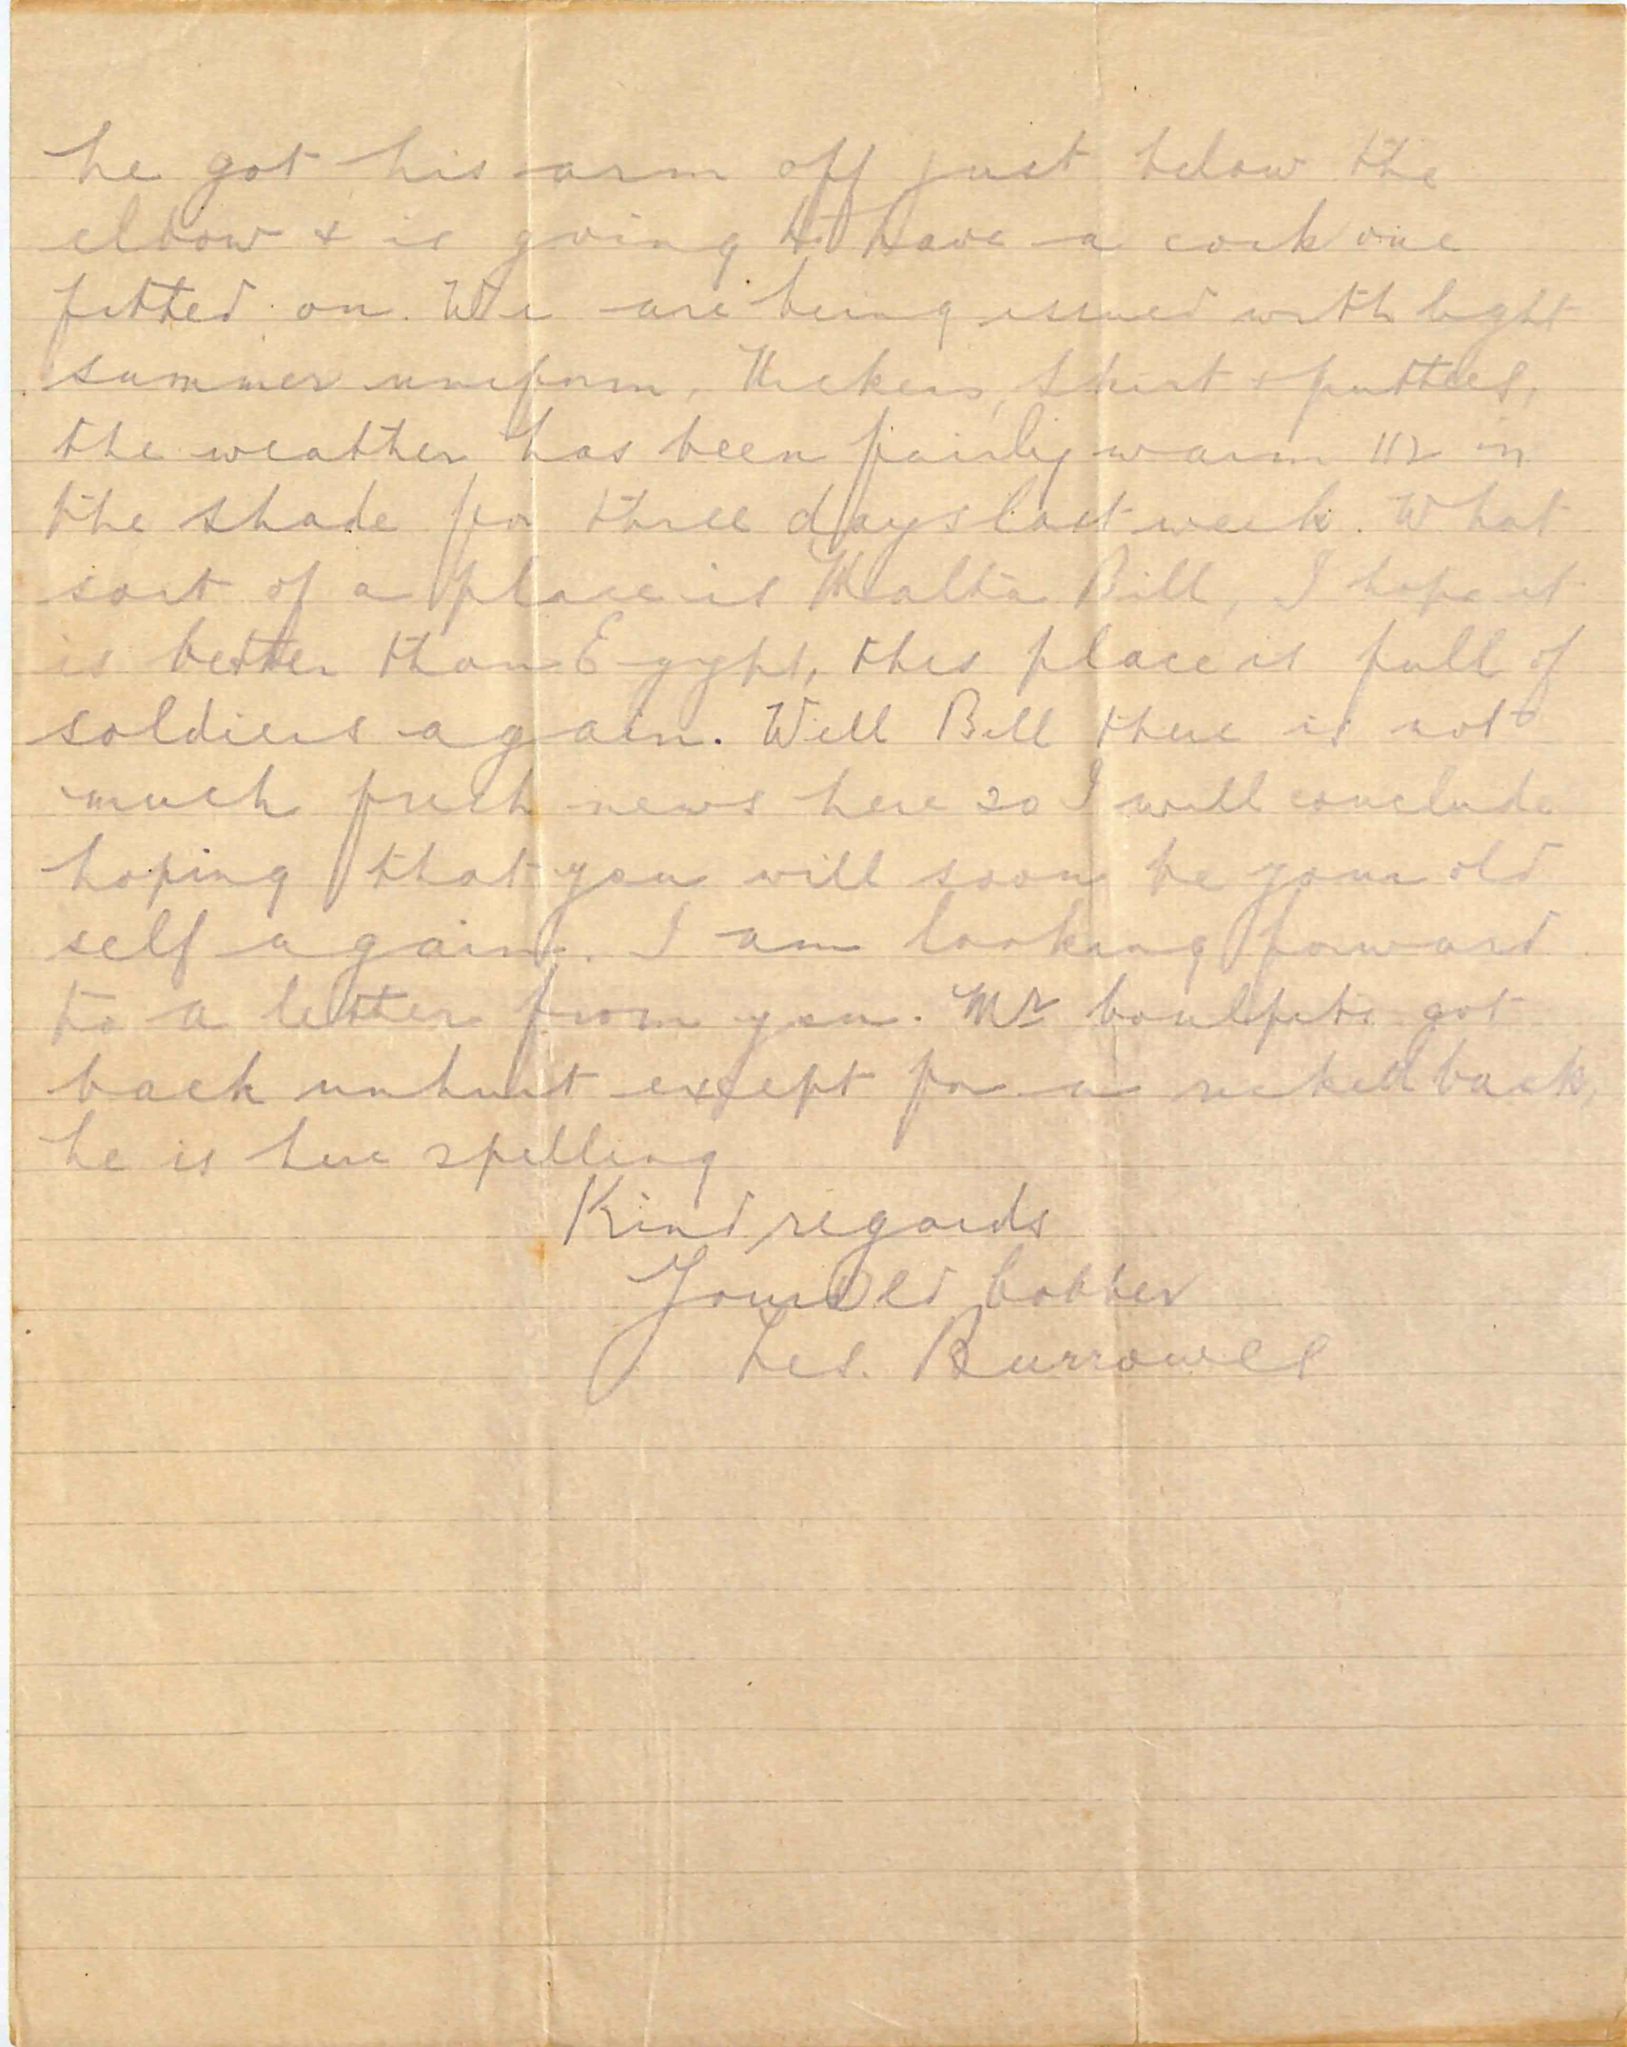 he got his arm off just below the
elbow & is going to have a cork one
fitted on. We are being issued with light
summer uniform, Knickers, Shirt & puttees,
the weather has been fairly warm 112 in
the shade for three days last week. What
sort of a place is Malta Bill, I hope it
is better than Egypt, this place is full of
soldiers again. Well Bill there is not
much fresh news here so I will conclude
hoping that you will soon be your old
self again. I am looking forward
to a letter from you. Mr got
back unhurt except for a ricked back,
he is here spelling
Kind regards
Your Old Cobber
Les. Burrowes